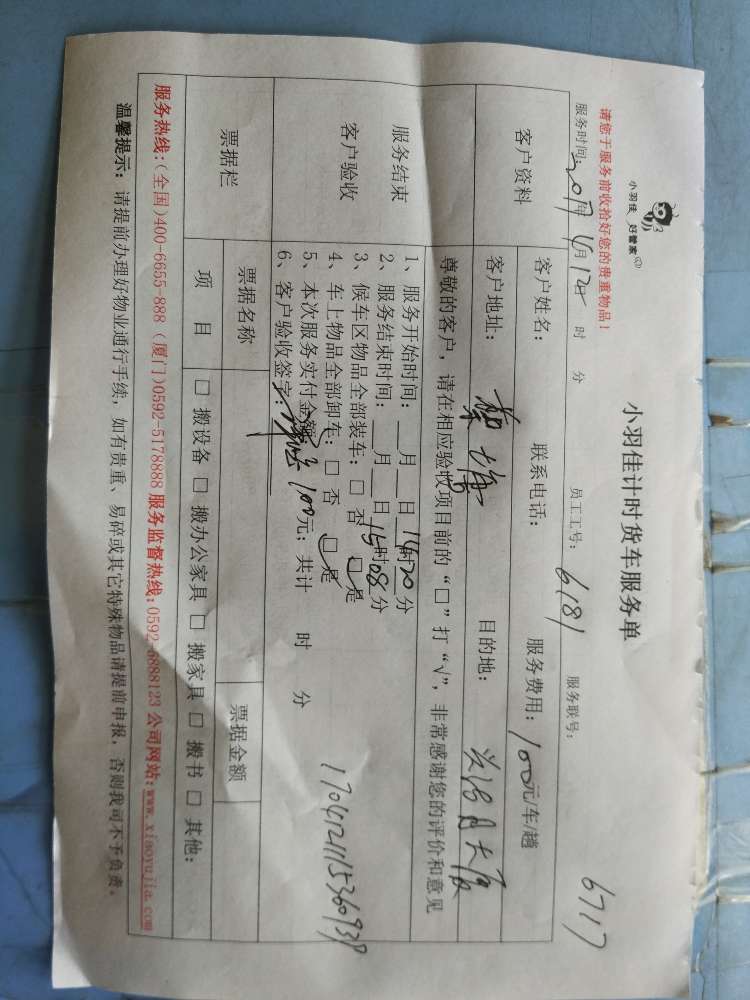 小羽佳 好管家
请您于服务前收拾好您的贵重物品！
小羽佳计时货车服务单
6717
服务时间：2017年4月12日 时 分 员工工号：6181 服务联号：
客户资料
客户姓名： 联系电话： 服务费用：100元/车/趟
客户地址： 目的地：
尊敬的客户，请在相应验收项目前的“□”打“√”，非常感谢您的评价和意见
服务结束
客户验收
1、服务开始时间：__月__日14时20分
2、服务结束时间：__月__日15时08分
3、候车区物品全部装车：□ 否 □是
4、车上物品全部卸车：□ 否 □是
5、本次服务实付金额：100元；共计 时 分
6、客户验收签字：
17041211536093
票据栏 票据名称 票据金额
项 目 □ 搬设备 □ 搬办公家具 □ 搬家具 □ 搬书 □ 其他：
服务热线：(全国)400-6655-888 (厦门)0592-5178888 服务监督热线：0592-6888123 公司网站：www.xiaoyujia.com
温馨提示：请提前办理好物业通行手续，如有贵重、易碎或其它特殊物品请提前申报，否则我司不予负责。